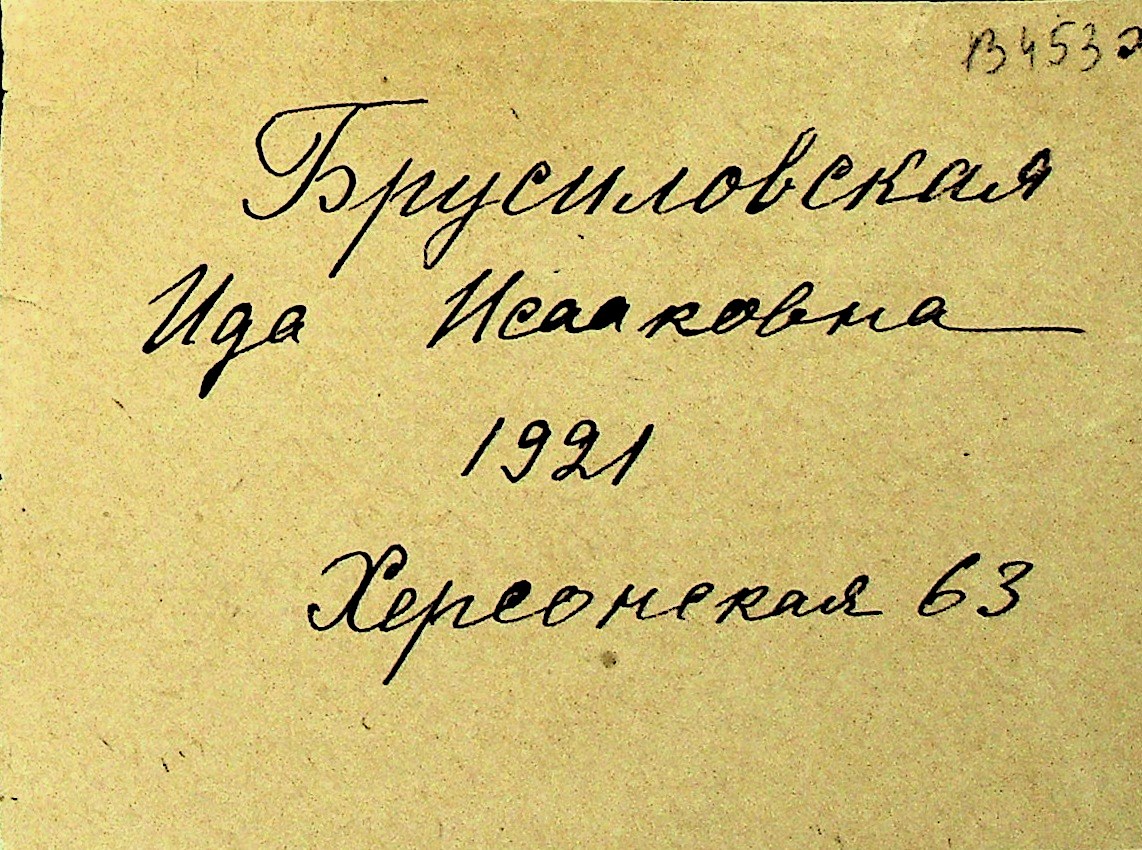 Брусиловская
Ида Исааковна
1921
Херсонская 63